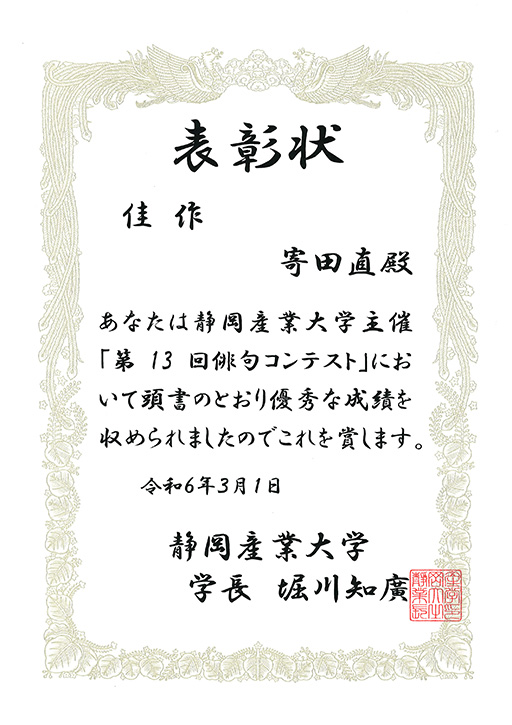 表彰状
佳作
寄田直殿
あなたは静岡産業大学主催
「第13回俳句コンテスト」にお
いて頭書のとおり優秀な成績を
収められましたのでこれを賞します。
令和6年3月1日
静岡産業大学
学長 堀川知廣